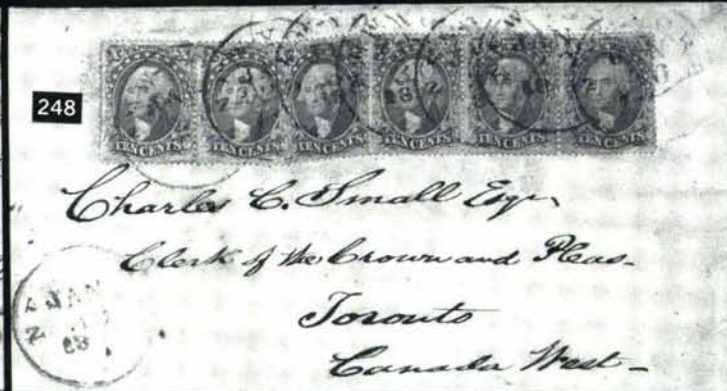 248
TEN CENTS TEN CENTS TEN CENTS TEN CENTS TEN CENTS TEN CENTS
Charles C. Small Esqr
Clerk of the Crown and Pleas-
Toronto
Canada West-
JAN